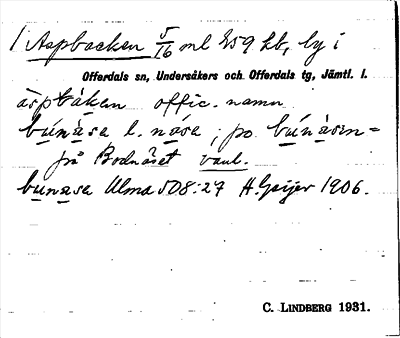 1 Aspbacken 5/16 ml 259 kb, by i
Offerdals sn, Undersåkers och Offerdals tg, Jämtl. l.
äspbákan offic. namn
búnåsa l. nåsa, po búnåsn=
på Bodnäset vanl.
bunasa Ulma 508:27 H. Geijer 1906.
C. LINDBERG 1931.